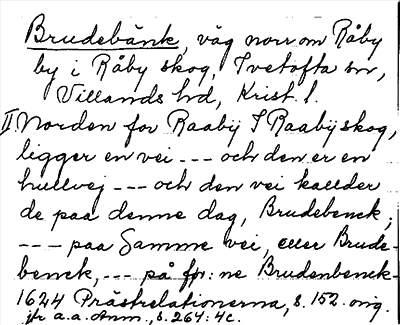 Brudebänk, väg norr om Råby
by i Råby skog, Ivetofta sn,
Villands hd, Krist. l.
II Norden for Raabÿ I Raabÿ skog,
ligger en vei --- och den er en
hullvej --- och den vei kallder
de paa denne dag, Brudebenck;
--- paa Samme vei, eller Brude-
benck, --- på för: ne Brudenbenck-
1624 Prästrelationerna, s. 152. orig.
jfr a. a. Anm., s. 264: 4c.